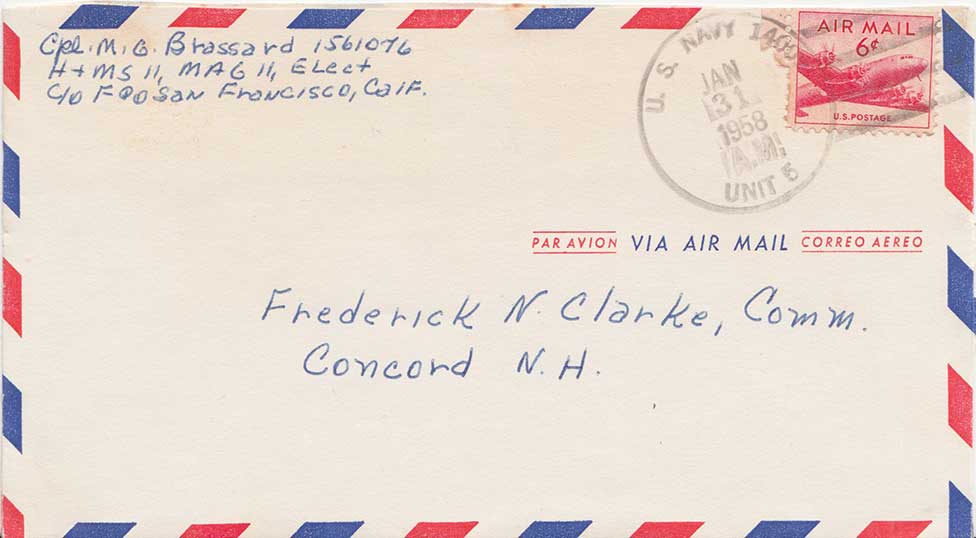 Cpl. M. G. Brassard 1561076
H+MS 11, MAG 11, Elect
C/O FPO San Francisco, Calif.
U. S. NAVY 140
JAN
31
1958
A.M.
UNIT 5
AIR MAIL
6¢
U.S. POSTAGE
PAR AVION VIA AIR MAIL CORREO AEREO
Frederick N. Clarke, Comm.
Concord N.H.